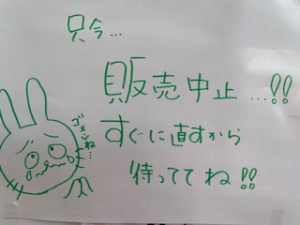 只今…
販売中止…!!
すぐに直すから
待っててね!!
ゴメンね…